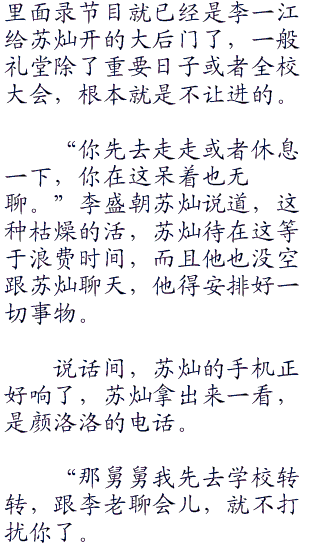 里面录节目就已经是李一江
给苏灿开的大后门了，一般
礼堂除了重要日子或者全校
大会，根本就是不让进的。
“你先去走走或者休息
一下，你在这呆着也无
聊。”李盛朝苏灿说道，这
种枯燥的活，苏灿待在这等
于浪费时间，而且他也没空
跟苏灿聊天，他得安排好一
切事物。
说话间，苏灿的手机正
好响了，苏灿拿出来一看，
是颜洛洛的电话。
“那舅舅我先去学校转
转，跟李老聊会儿，就不打
扰你了。